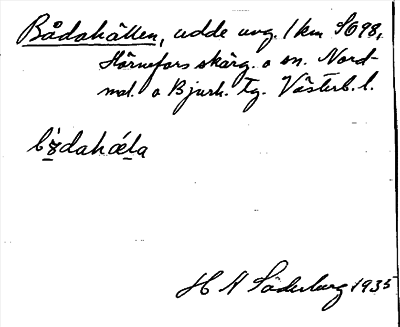 Bådahällen, udde ung. 1 km SO 98,
Hörnefors skärg. o sn. Nord-
mal. o Bjurh. tg. Västerb. l.
bådahǽla
H A Söderberg 1935